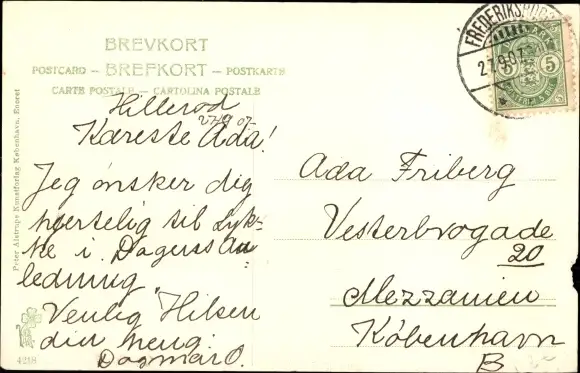 BREVKORT
POSTCARD — BREFKORT — POSTKARTE
CARTE POSTALE — CARTOLINA POSTALE
Hillerød
27/9 07.
Kæreste Ada!
Jeg ønsker dig
hjertelig til Lyk-
ke i Dagens An
ledning
Venlig Hilsen
din heng.
Dagmar O.
Ada Friberg
Vesterbrogade
20
Mezzanien
København
B
Peter Alstrups Kunstforlag København. Eneret
4218
FREDERIKSBORG
27.9.07
5 5